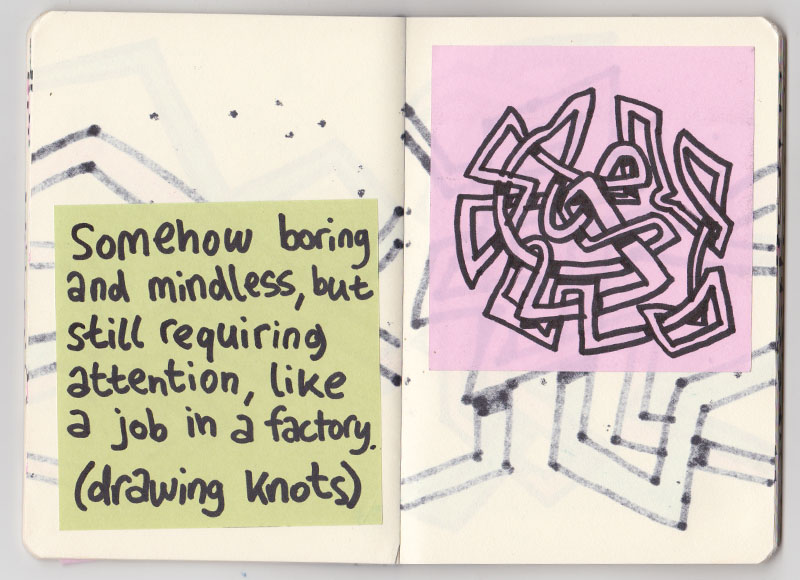 Somehow boring
and mindless, but
still requiring
attention, like
a job in a factory.
(drawing knots)